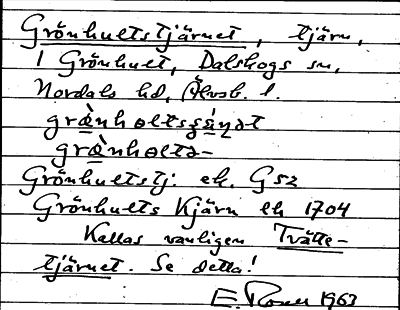 Grönhultstjärnet, tjärn,
i Grönhult, Dalskogs sn,
Nordals hd, Älvsb. l.
græ̀nhɵltsʂǽɳət
græ̀nhɵltə-
Grönhultstj: ek. G52
Grönhults Kjärn ek 1704
Kallas vanligen Tvätte-
tjärnet. Se detta!
E. 1963